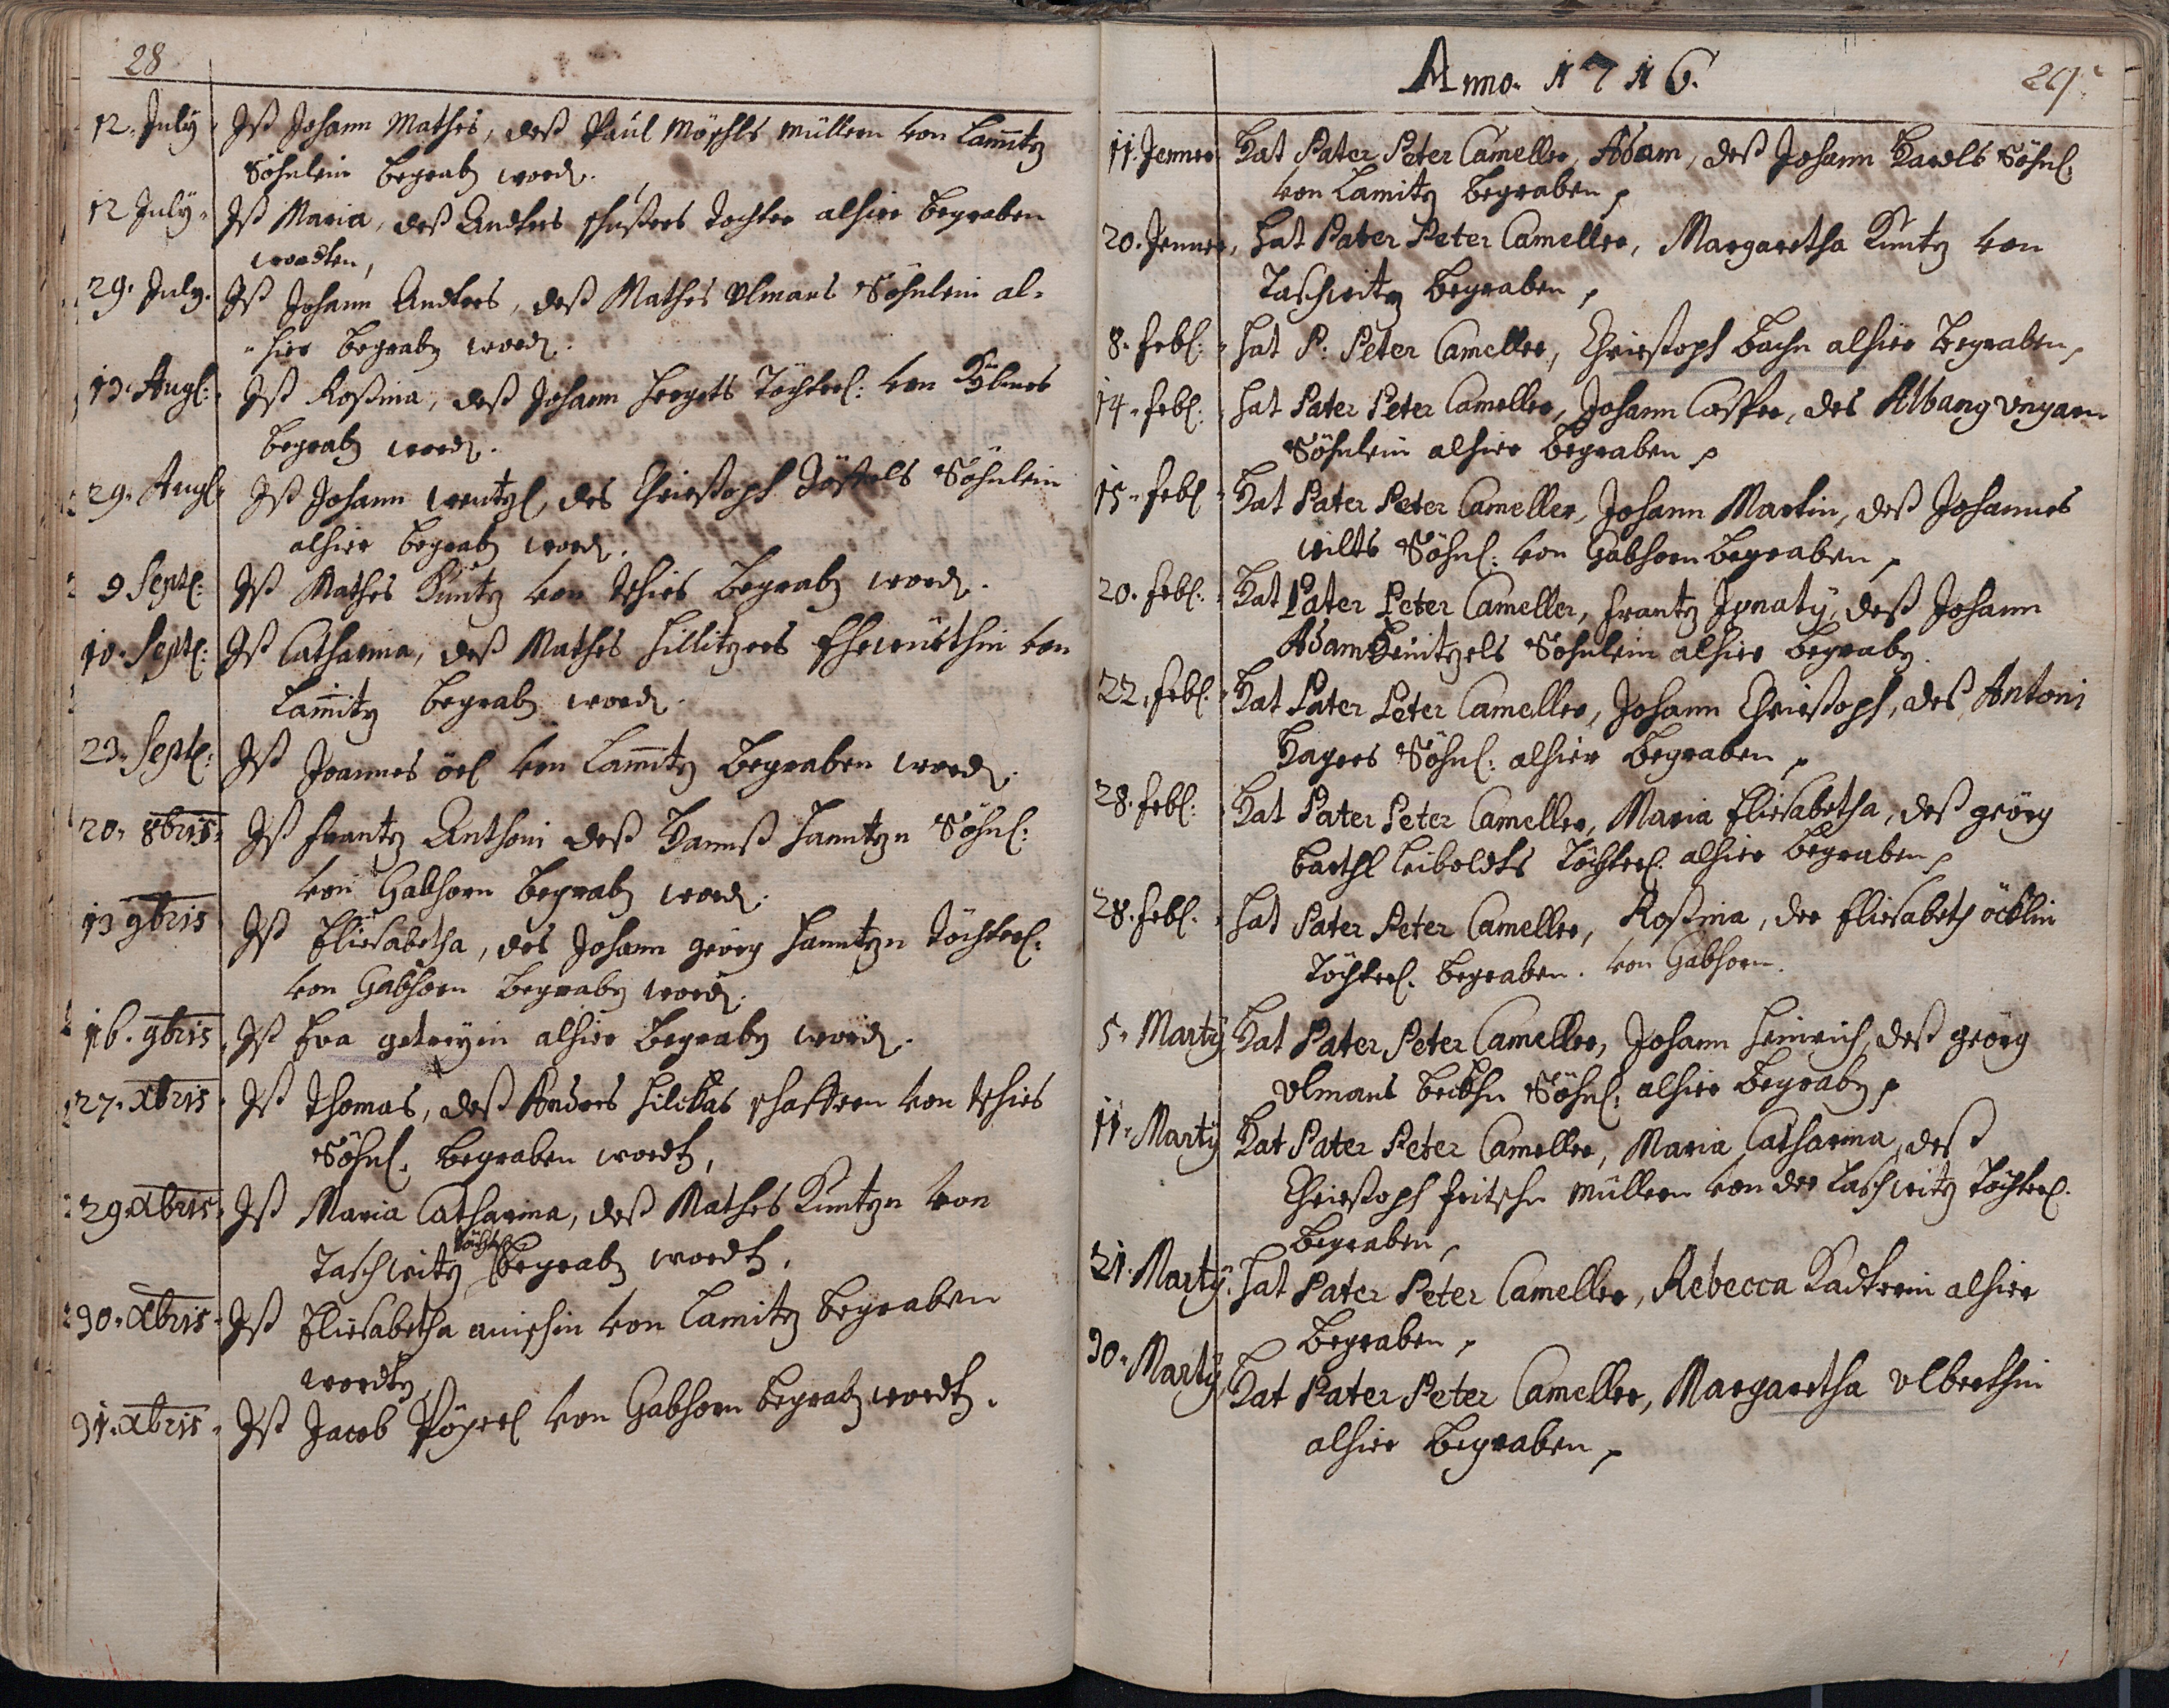 28
12. July Ist Johann Mathes, deß Paul Möschls Müllern von Lam̄itz
Söhnlein begrab word.
12 July Ist Maria, deß Andtres schusters tochter alhier begraben
wordten,
29. July. Ist Johann Andtres, deß Mathes Ulmans Söhnlein al-
-hier begrab word.
13. Aug: Ist Rosina, deß Johann hergets Töchterl: von
begrab word.
29. Aug Ist Johann wentzl, des Christoph Söhnlein
alhier begrab word.
9 Sept: Ist Mathes Kuntz von tschies begrab word.
10. Sept: Ist Catharina, deß Mathes hillitzers Ehewürthin von
Lam̄itz begrab word.
23. Sept: Ist Joannes öel von Lam̄itz begraben word.
20. 8bris Ist frantz Anthoni deß Hannß hanntzn Söhnl:
von Gabhorn begrab word.
13 9bris Ist Eliesabetha, des Johann geörg hanntzn töchterl:
von Gabhorn begrab word.
16. 9bris Ist Eva getreyin alhier begrab word.
27. xbris Ist Thomas, deß Anders schaffern von tschies
Söhnl. begraben wordt,
29. xbris Ist Maria Catharina, deß Mathes Kuntzn von
Taschwitz töchterl begrab wordt.
30. xbris Ist Eliesabetha von Lamitz begraben
wordt,
31. xbris Ist Jacob Pögerl von Gabhorn begrab wordt.
Anno. 1716. 29.
11. Jenner Hat Pater Peter Cameller, Adam, deß Johann Hardls Söhnl.
von Lamitz begraben,
20. Jenner, hat Pater Peter Cameller, Margaretha Kuntz von
Taschwitz begraben,
8. febr: hat P: Peter Cameller, Christoph bachn alhier begraben,
14. febr: hat Pater Peter Cameller, Johann Casper, des Albang ungarn
Söhnlein alhier begraben,
15. febr Hat Pater Peter Cameller, Johann Martin, deß Johannes
wilts Söhnl: von Gabhorn begraben,
20. febr: Hat Pater Peter Cameller, frantz Ignaty, deß Johann
Adam Heinitzels Söhnlein alhier begrab.
22. febr. Hat Pater Peter Cameller, Johann Christoph, des Antoni
Hagers Söhnl: alhier begraben,
28. febr: Hat Pater Peter Cameller, Maria Eliesabetha, deß geörg
barthl leiboldts Töchterl. alhier begraben,
28. febr. hat Pater Peter Cameller, Rosina, der Eliesabeth öcklin
Töchterl. begraben. von Gabhorn.
5. Martÿ Hat Pater Peter Cameller, Johann heinrich, deß geörg
Ulmans beckhn Söhnl: alhier begrab,
11. Martÿ Hat Pater Peter Cameller, Maria Catharina, deß
Christoph fritschn müllern von der taschwitz töchterl.
begraben,
21. Martÿ. hat Pater Peter Cameller, Rebecca Kadtrein alhier
begraben,
30. Martÿ Hat Pater Peter Cameller, Margaretha Ulberthin
alhier begraben,